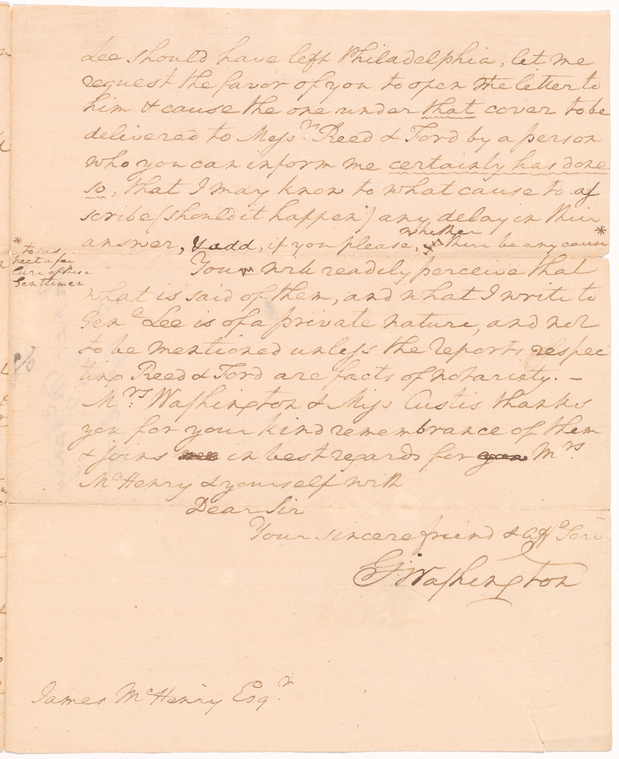 Lee should have left Philadelphia, let me
request the favor of you to open the letter to
him & cause the one under that cover to be
delivered to Messrs Reed & Ford by a person
who you can inform me certainly has done
so, that I may know to what cause to as
scribe (should it happen) any delay in their
answer, & add, if you please, whether there be any cause *
* to sus
pect a fai
lure of these
Gentlemen
You will readily perceive that
what is said of them, and what I write to
Genl Lee is of a private nature, and not
to be mentioned unless the reports respec
ting Reed & Ford are facts of notoriety. –
Mrs Washington & Miss Custis thanks
you for your kind remembrance of them
& joins in best regards for Mrs
McHenry & yourself with
Dear Sir
Your sincere friend & Affe Serv
G Washington
James McHenry Esqr